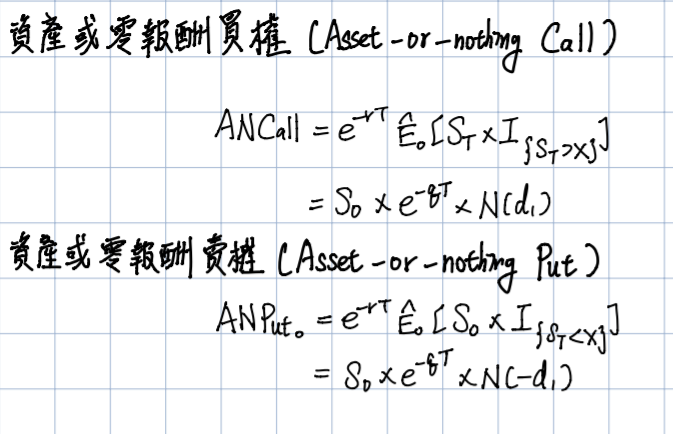 資產或零報酬買權 (Asset-or-nothing Call)
ANCall = e^{-rT} Ê₀[S_T × I_{{S_T>X}}]
= S₀ × e^{-qT} × N(d₁)
資產或零報酬賣權 (Asset-or-nothing Put)
ANPut₀ = e^{-rT} Ê₀[S₀ × I_{{S_T<X}}]
= S₀ × e^{-qT} × N(-d₁)